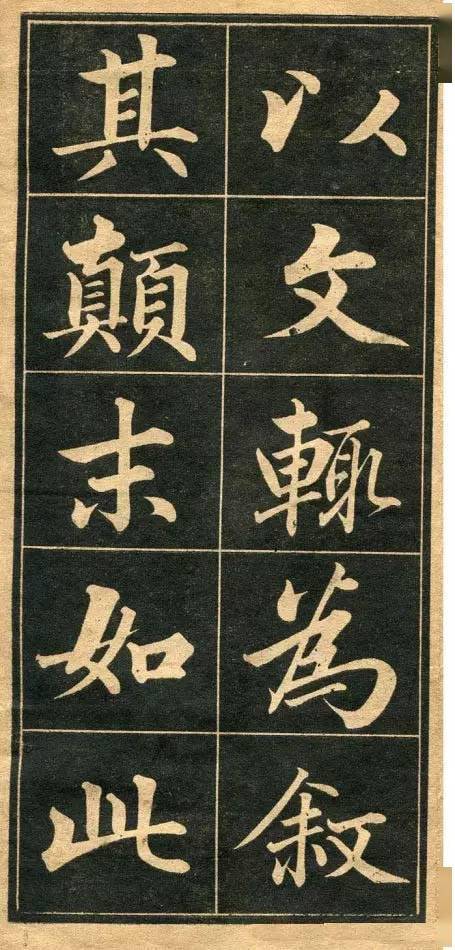 以文輙為敘
其顛末如此